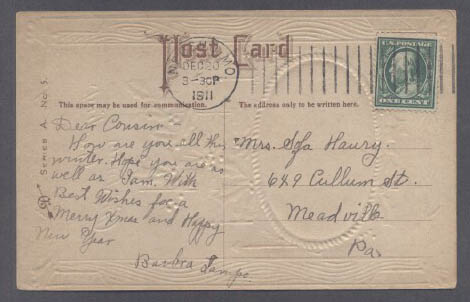 Post Card
MO.
DEC 20
3-30P
1911
U.S. POSTAGE
ONE CENT
This space may be used for communication.
The address only to be written here.
SERIES A No 5.
Dear Cousin
How are you all this
winter. Hope you are as
well as I am. With
Best Wishes for a
Merry Xmas and Happy
New Year
Barbra
Mrs. Sofa Haury.
649 Cullum St.
Meadville
Pa.